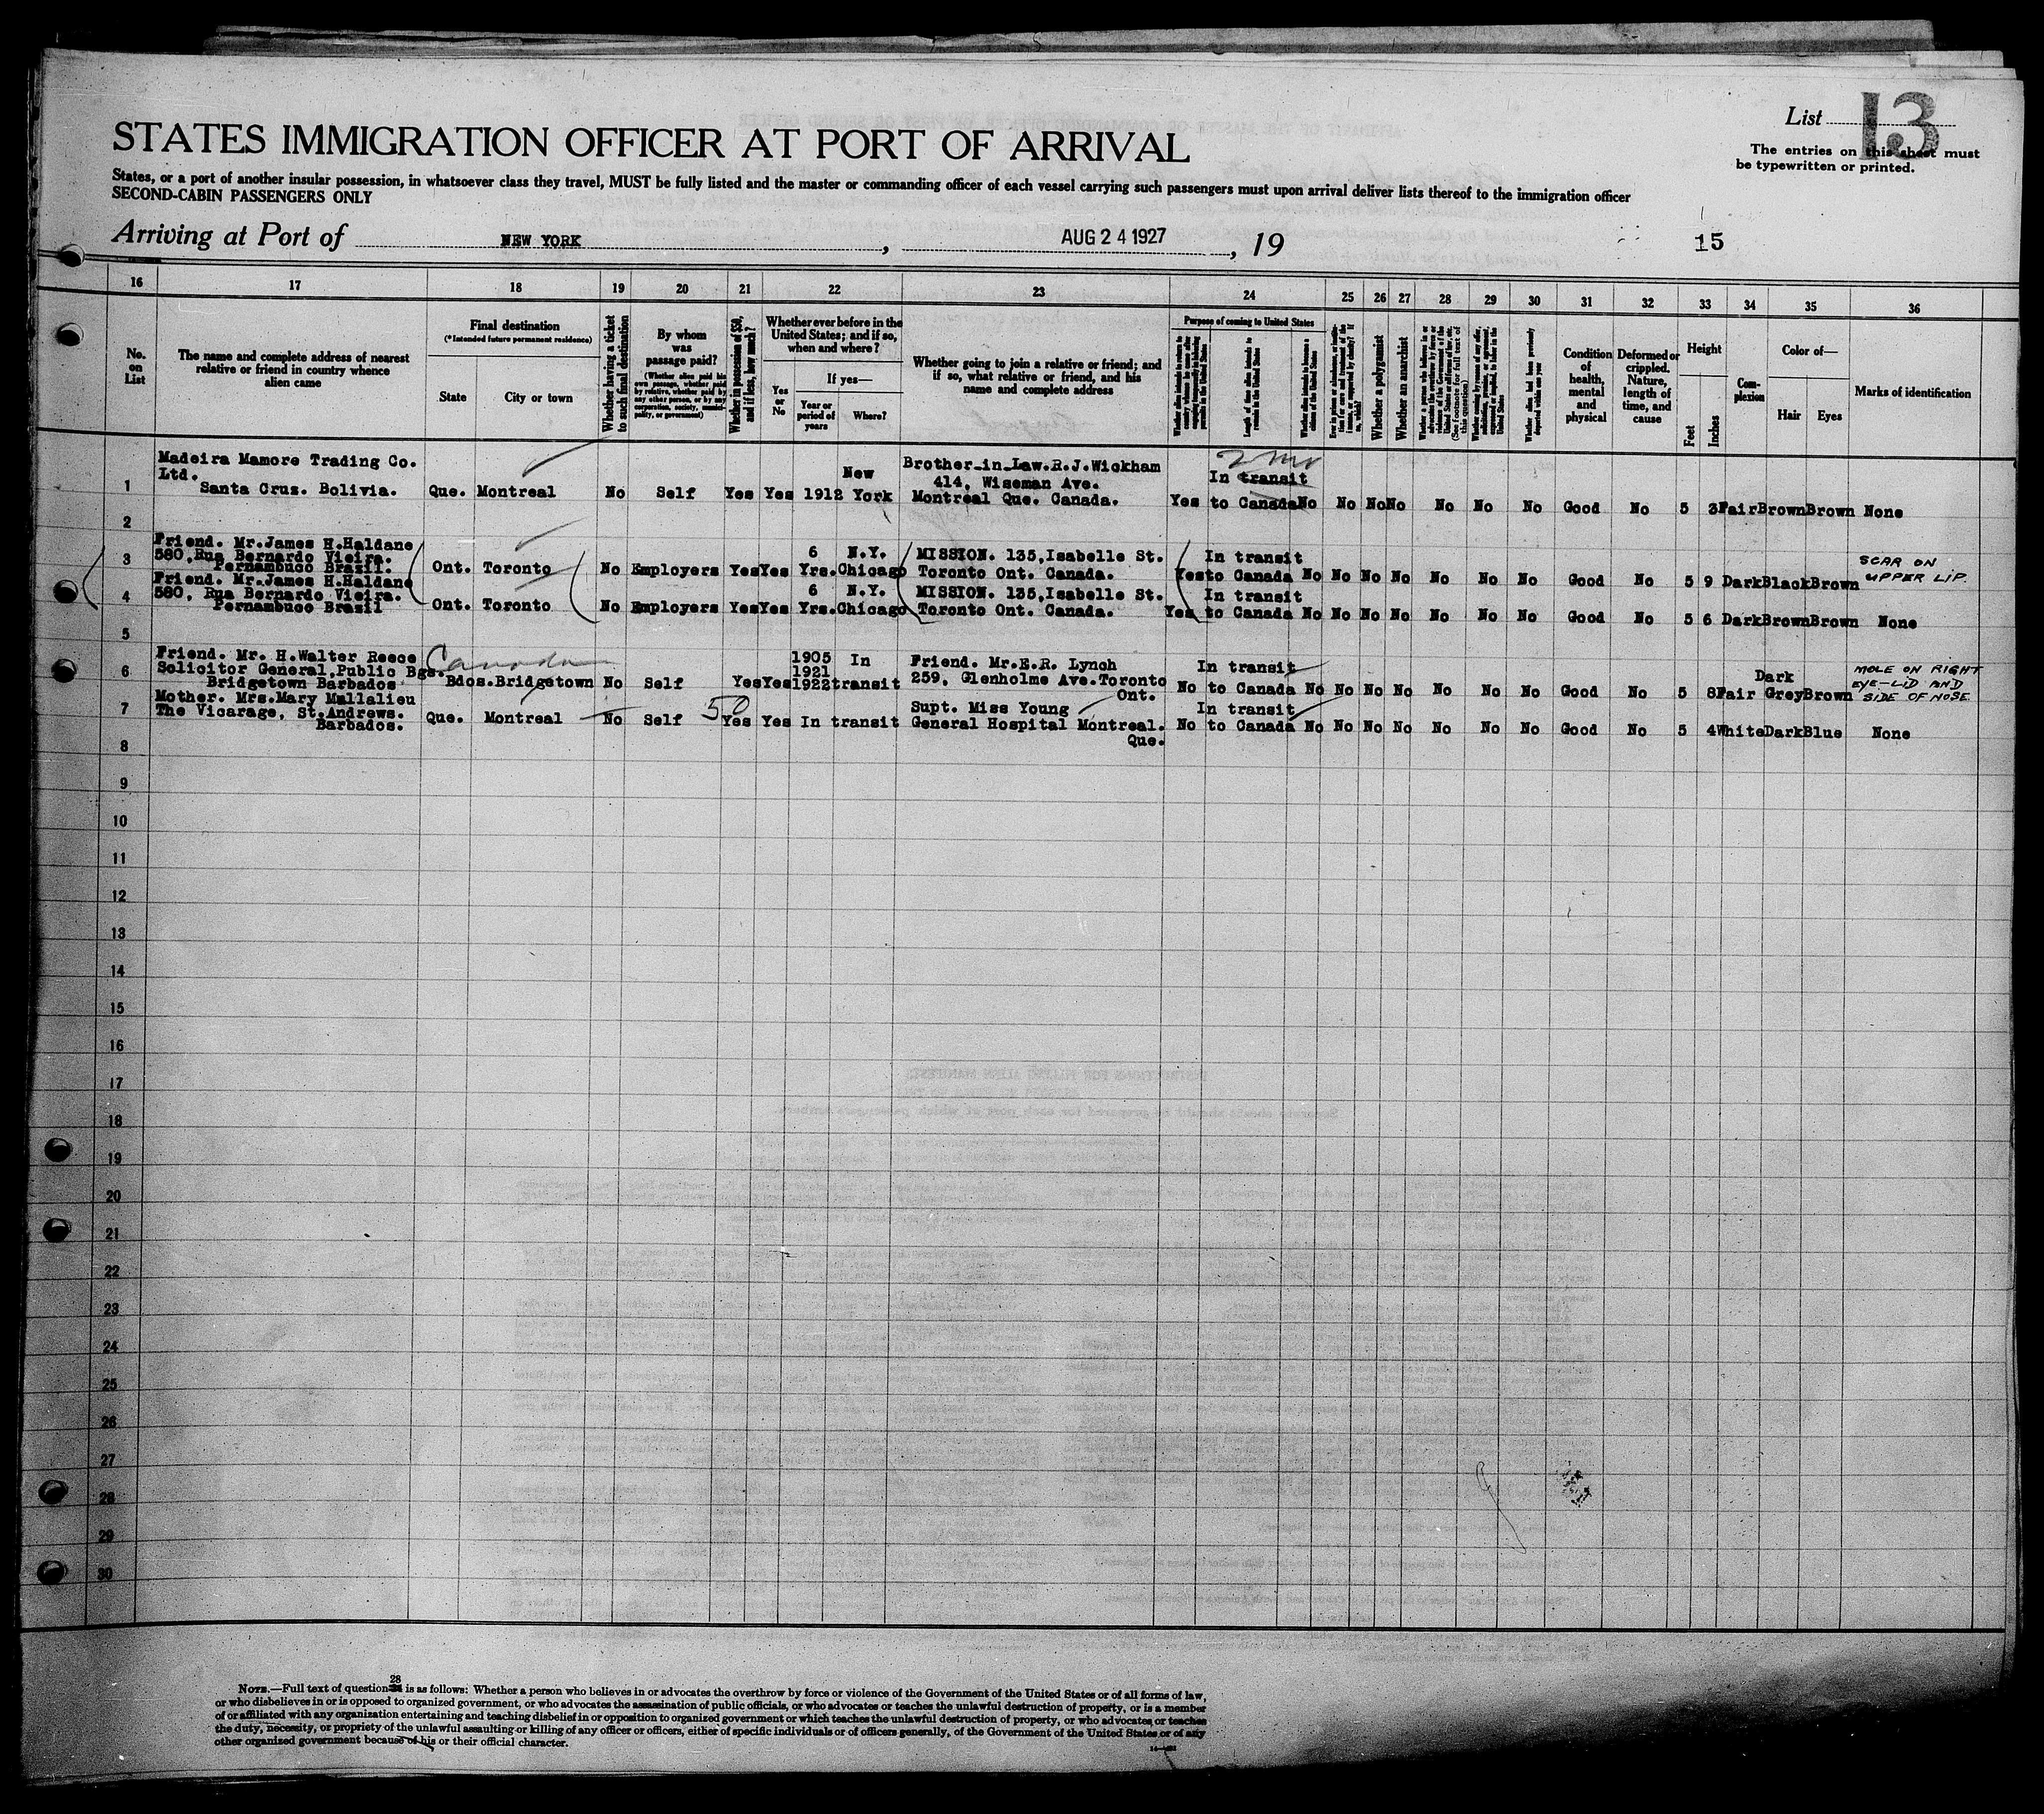 List 13
STATES IMMIGRATION OFFICER AT PORT OF ARRIVAL
The entries on this sheet must
be typewritten or printed.
States, or a port of another insular possession, in whatsoever class they travel, MUST be fully listed and the master or commanding officer of each vessel carrying such passengers must upon arrival deliver lists thereof to the immigration officer
SECOND-CABIN PASSENGERS ONLY
Arriving at Port of NEW YORK, AUG 24 1927, 19 15
16 17 18 19 20 21 22 23 24 25 26 27 28 29 30 31 32 33 34 35 36
No.
on
List
The name and complete address of nearest
relative or friend in country whence
alien came
Final destination
(*Intended future permanent residence)
State City or town
Whether having a ticket
to such final destination
By whom
was
passage paid?
(Whether alien paid his
own passage, whether paid
by relative, whether paid by
any other person, or by any
corporation, society, munici-
pality, or government)
Whether in possession of $50,
and if less, how much?
Whether ever before in the
United States; and if so,
when and where?
Yes
or
No
If yes—
Year or
period of
years
Where?
Whether going to join a relative or friend; and
if so, what relative or friend, and his
name and complete address
Purpose of coming to United States
Length of time alien intends to
remain in the United States
Whether alien intends to become a
citizen of the United States
Whether a polygamist
Whether an anarchist
Whether alien had been previously
deported within one year
Condition
of
health,
mental
and
physical
Deformed or
crippled.
Nature,
length of
time, and
cause
Height
Feet Inches
Com-
plexion
Color of—
Hair Eyes
Marks of identification
Madeira Mamore Trading Co.
Ltd.
1 Santa Cruz. Bolivia. Que. Montreal No Self Yes Yes 1912 New York
Brother-in-Law. R.J.Wickham
414, Wiseman Ave.
Montreal Que. Canada.
2 mo
In transit
Yes to Canada No No No No No No No Good No 5 3 Fair Brown Brown None
2
Friend. Mr.James H.Haldane
3 580, Rua Bernardo Vieira.
Pernambuco Brazil. Ont. Toronto No Employers Yes Yes 6 Yrs. N.Y. Chicago
MISSION. 135, Isabelle St.
Toronto Ont. Canada.
In transit
Yes to Canada No No No No No No No Good No 5 9 Dark Black Brown SCAR ON
UPPER LIP.
Friend. Mr.James H.Haldane
4 580, Rua Bernardo Vieira.
Pernambuco Brasil Ont. Toronto No Employers Yes Yes 6 Yrs. N.Y. Chicago
MISSION. 135, Isabelle St.
Toronto Ont. Canada.
In transit
Yes to Canada No No No No No No No Good No 5 6 Dark Brown Brown None
5
Friend. Mr. H.Walter Reece
6 Solicitor General, Public Bgs.
Bridgetown Barbados
Canada
Bdos. Bridgetown No Self Yes Yes 1905
1921
1922 In transit
Friend. Mr.E.R. Lynch
259, Glenholme Ave. Toronto
Ont.
In transit
No to Canada No No No No No No No Good No 5 8 Fair Dark Grey Brown MOLE ON RIGHT
EYE-LID AND
SIDE OF NOSE
Mother. Mrs.Mary Mallalieu
7 The Vicarage, St.Andrews.
Barbados. Que. Montreal No Self 50 Yes Yes In transit
Supt. Miss Young
General Hospital Montreal.
Que.
In transit
No to Canada No No No No No No No Good No 5 4 White Dark Blue None
8
9
10
11
12
13
14
15
16
17
18
19
20
21
22
23
24
25
26
27
28
29
30
28
NOTE.—Full text of question is as follows: Whether a person who believes in or advocates the overthrow by force or violence of the Government of the United States or of all forms of law,
or who disbelieves in or is opposed to organized government, or who advocates the assassination of public officials, or who advocates or teaches the unlawful destruction of property, or is a member
of or affiliated with any organization entertaining and teaching disbelief in or opposition to organized government or which teaches the unlawful destruction of property, or who advocates or teaches
the duty, necessity, or propriety of the unlawful assaulting or killing of any officer or officers, either of specific individuals or of officers generally, of the Government of the United States or of any
other organized government because of his or their official character.